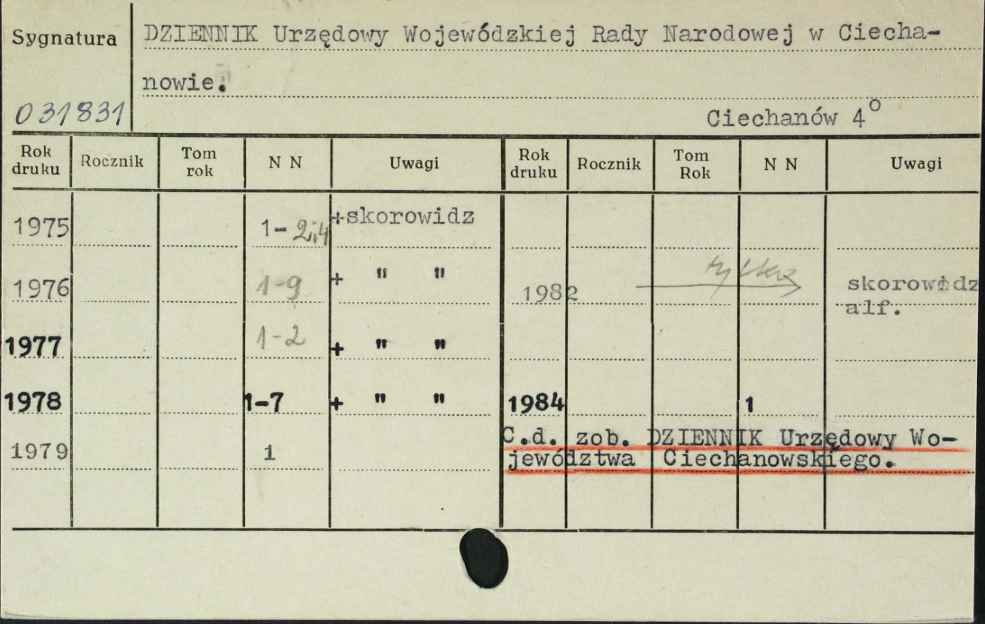 Sygnatura
DZIENNIK Urzędowy Wojewódzkiej Rady Narodowej w Ciecha-
nowie.
031831
Ciechanów 4°
Rok druku Rocznik Tom rok N N Uwagi Rok druku Rocznik Tom Rok N N Uwagi
1975 1-2,4 +skorowidz
1976 1-9 + " " 1982 tylko skorowidz
alf.
1977 1-2 + " "
1978 1-7 + " " 1984 1
1979 1 C.d. zob. DZIENNIK Urzędowy Wo-
jewództwa Ciechanowskiego.